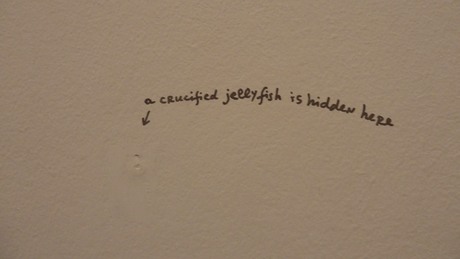 a crucified jellyfish is hidden here